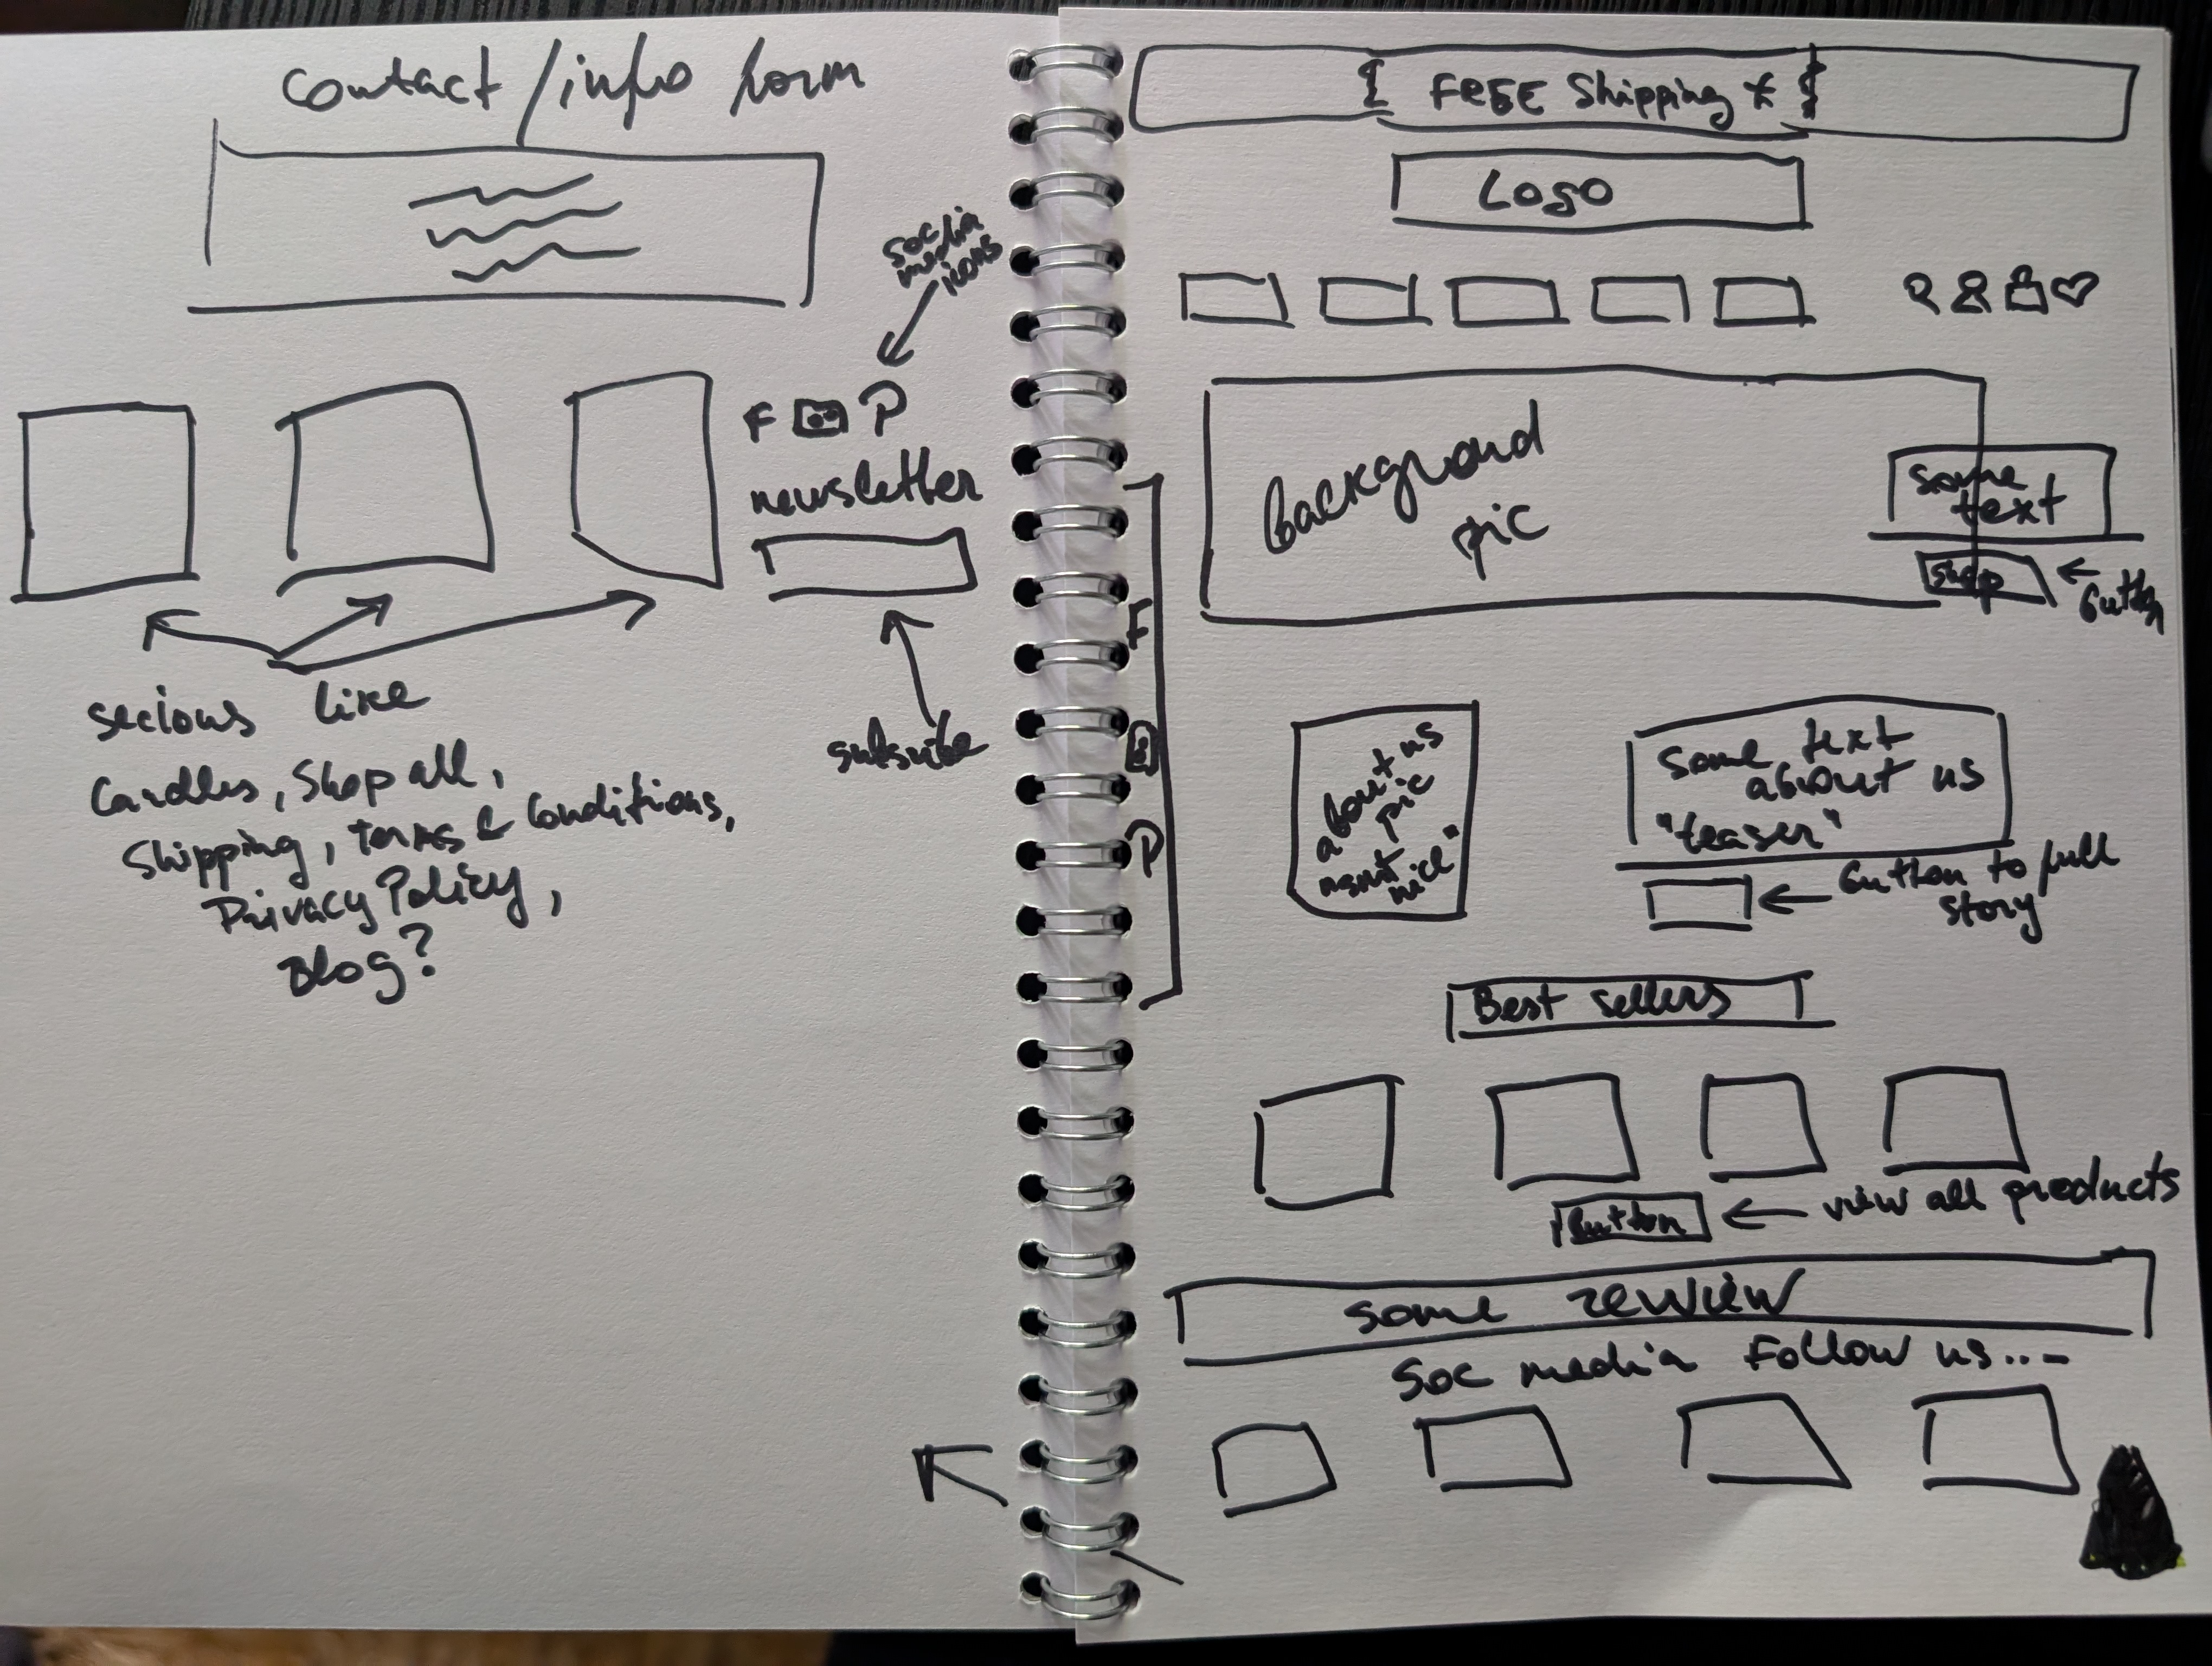 contact / info form
soc
media
icons
F P
newsletter
subsribe
secions like
Candles, Shop all,
Shipping, Terms & Conditions,
Privacy Policy,
Blog?
{ FREE Shipping * }
LOGO
background
pic
some
text
shop
button
F
P
about us
pic
some text
about us
"teaser"
button to full
story
Best sellers
Button
view all products
some rewview
Soc media Follow us...